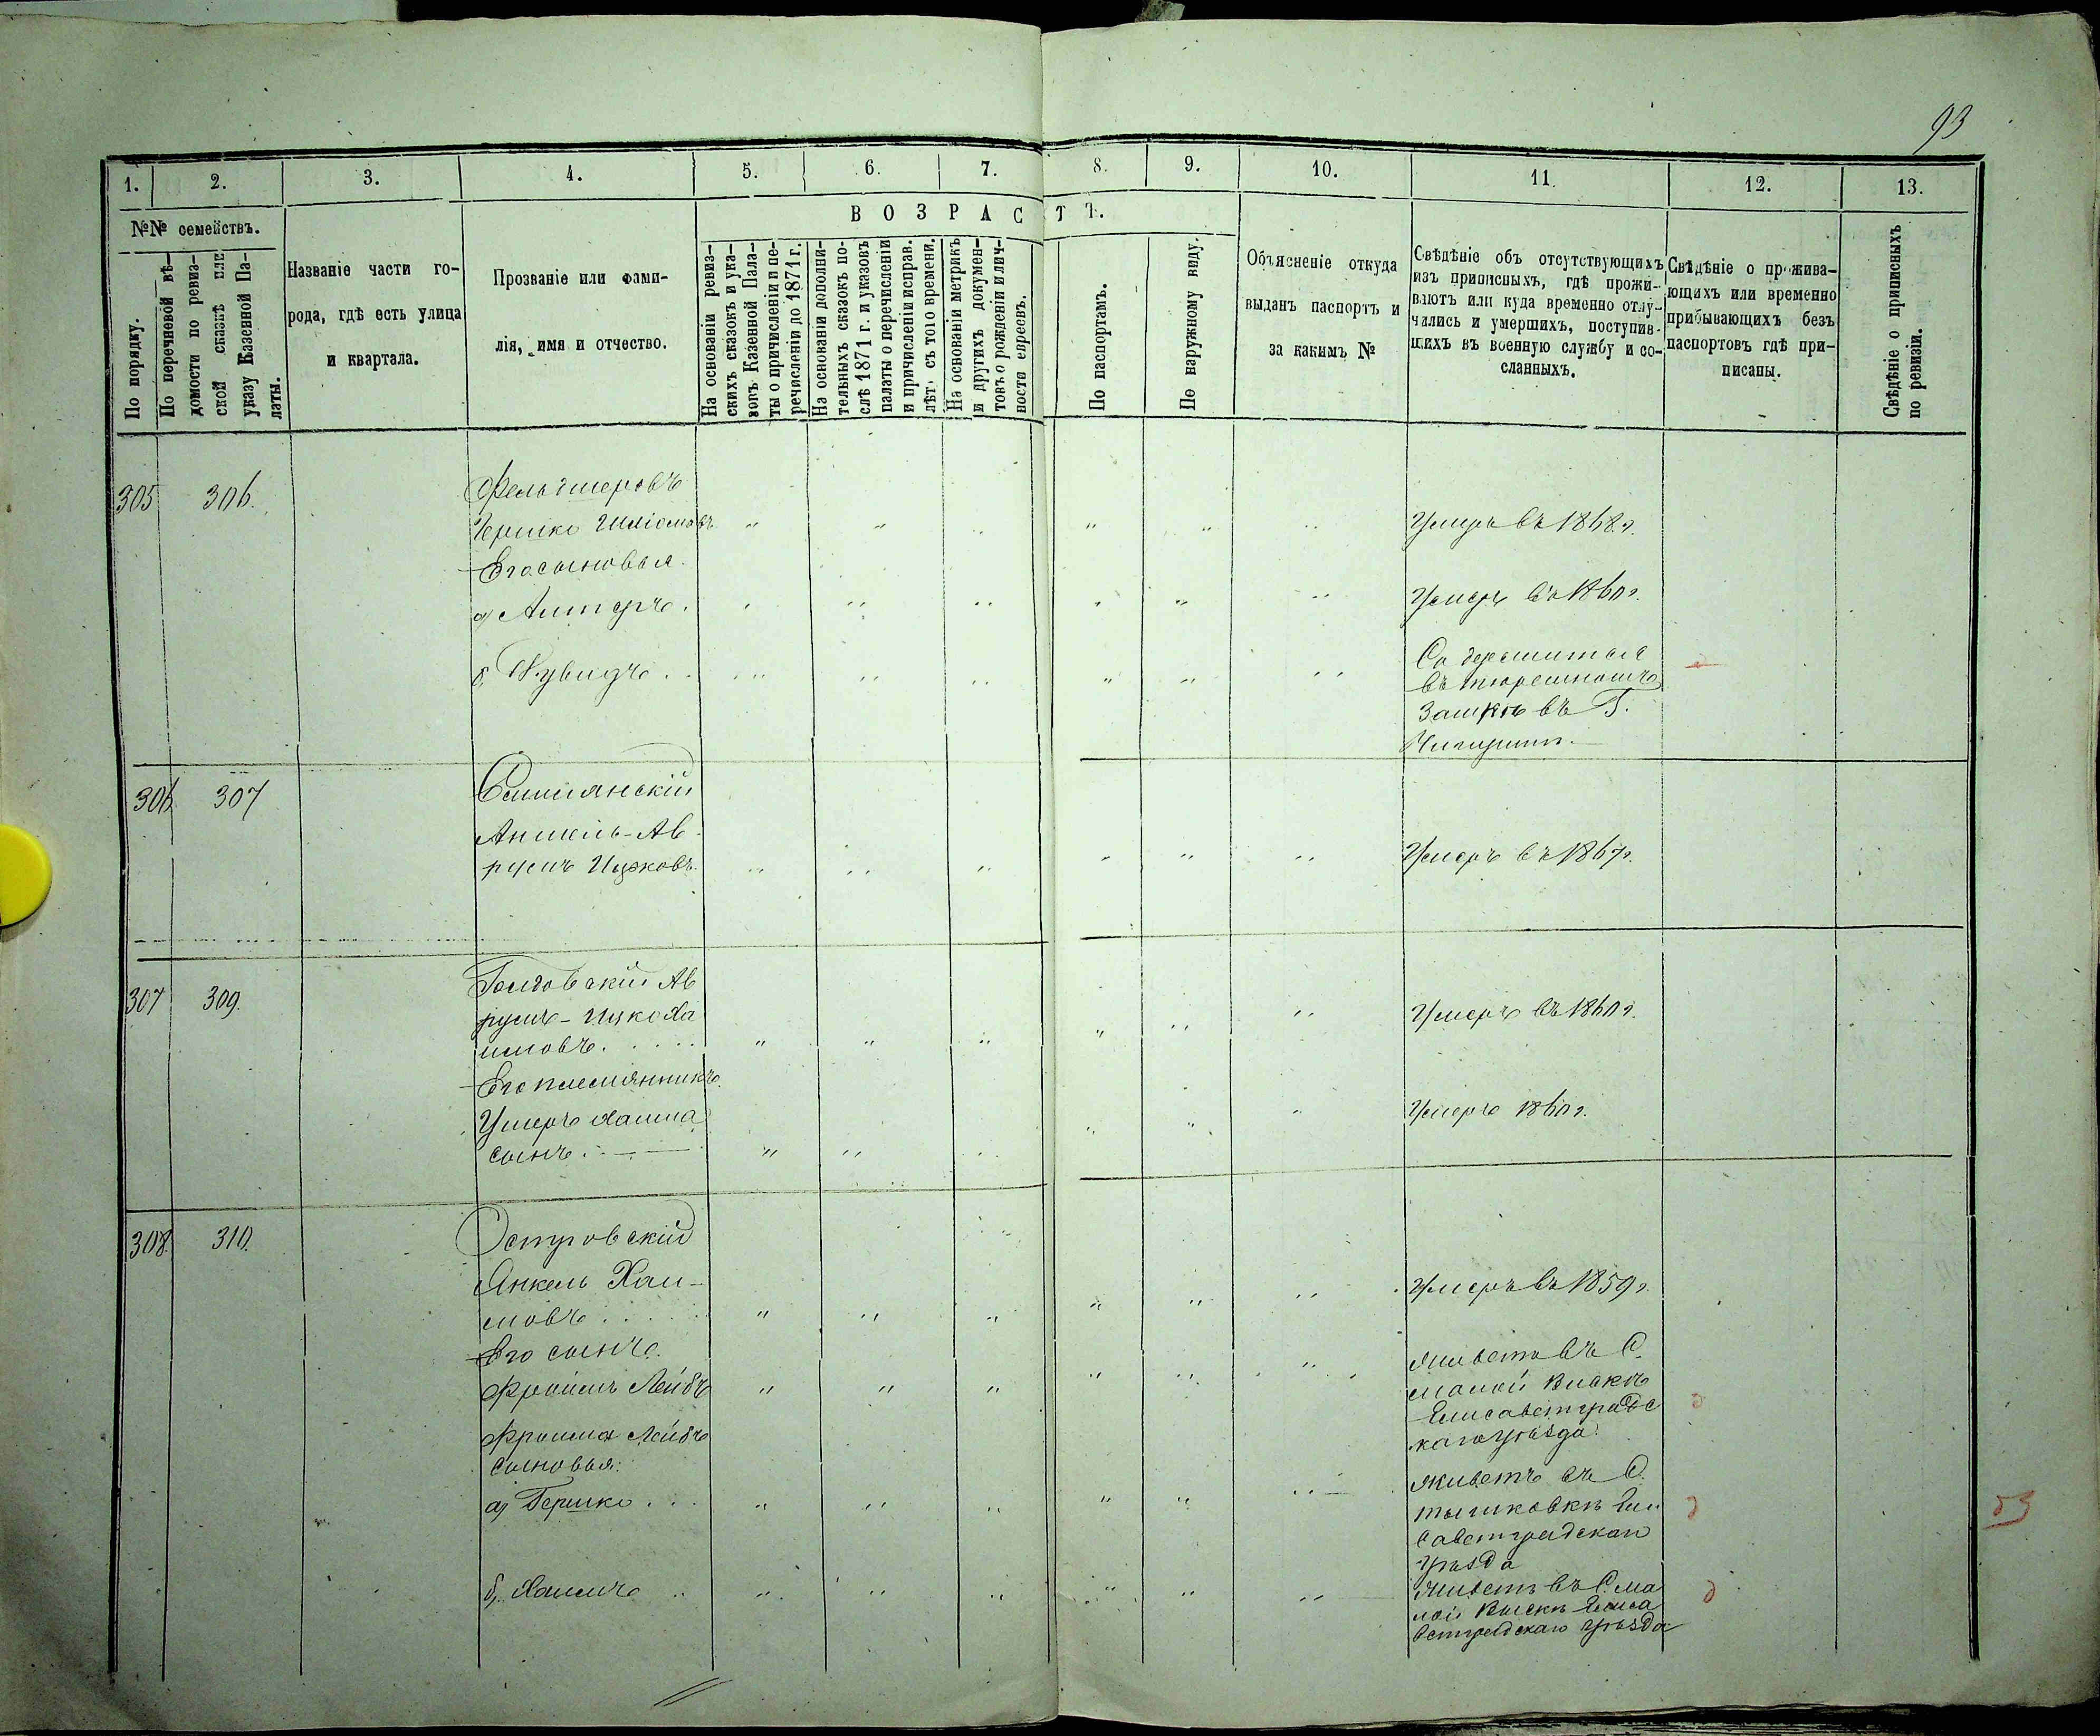 93
1. 2. 3. 4. 5. 6. 7. 8. 9. 10. 11. 12. 13.
№№ семействъ.
По порядку.
По перечневой вѣ-
домости по ревиз-
ской сказкѣ или
указу Казенной Па-
латы.
Названіе части го-
рода, гдѣ есть улица
и квартала.
Прозваніе или фами-
лія, имя и отчество.
ВОЗРАСТЪ.
На основаніи ревиз-
скихъ сказокъ и ука-
зокъ Казенной Пала-
ты о причисленіи и пе-
речисленіи до 1871 г.
На основаніи дополни-
тельныхъ сказокъ по-
слѣ 1871 г. и указовъ
палаты о перечисленіи
и причисленіи исправ.
лѣтъ съ того времени.
На основаніи метрикъ
и другихъ докумен-
товъ о рожденіи и лич-
ности евреевъ.
По паспортамъ.
По наружному виду.
Объясненіе откуда
выданъ паспортъ и
за какимъ №
Свѣдѣніе объ отсутствующихъ
изъ приписныхъ, гдѣ прожи-
ваютъ или куда временно отлу-
чились и умершихъ, поступив-
шихъ въ военную службу и со-
сланныхъ.
Свѣдѣніе о прожива-
ющихъ или временно
прибывающихъ безъ
паспортовъ гдѣ при-
писаны.
Свѣдѣніе о приписныхъ
по ревизіи.
305 306.
Фельдшеровъ
Гершко Шліомовъ
Умеръ въ 1868 г.
Его сыновья.
а) Алтеръ.
Умеръ въ 1860 г.
б,
Содержится
въ тюремномъ
Замкѣ въ Г.
Чигирин.
306 307
Аншель-Ав-
румъ Ицковъ.
Умеръ въ 1867 г.
307 309.
Ав
румъ-Ицко Ха
имовъ.
Умеръ въ 1860 г.
Его племянникъ.
Ушеръ Хаима
сынъ.
Умеръ 1860 г.
308. 310.
Островскій
Янкель Хаи-
мовъ
Умеръ въ 1859 г.
Его сынъ.
Фроимъ Лейбъ
Живетъ въ С.
малой Вискѣ
Елисаветградс
каго уѣзда.
Фроима Лейбъ
сыновья:
а) Гершко
Живетъ въ С.
Ели
саветградскаго
уѣзда
б) Хаимъ
Живетъ въ С. ма
лой Вискѣ Елиса
ветградскаго уѣзда